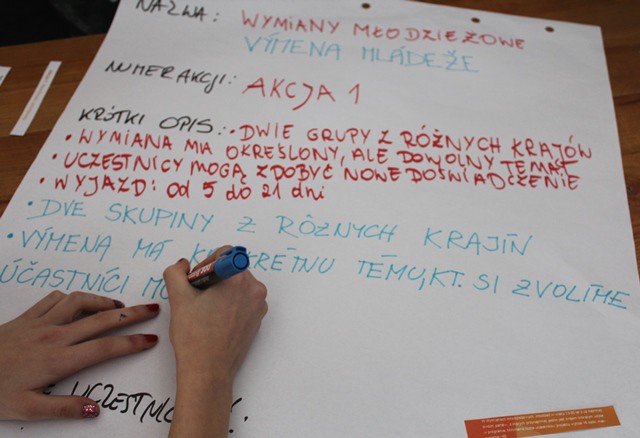 NAZWA: WYMIANY MŁODZIEŻOWE
VÝMENA MLÁDEŽE
NUMER AKCJI: AKCJA 1
KRÓTKI OPIS: • DWIE GRUPY Z RÓŻNYCH KRAJÓW
• WYMIANA MA OKREŚLONY, ALE DOWOLNY TEMAT
• UCZESTNICY MOGĄ ZDOBYĆ NOWE DOŚWIADCZENIE
• WYJAZD: od 5 do 21 dni
• DVE SKUPINY Z RÔZNYCH KRAJÍN
• VÝMENA MÁ KONKRÉTNU TÉMU, KT. SI ZVOLÍME
ÚČASTNÍCI
UCZESTNIC